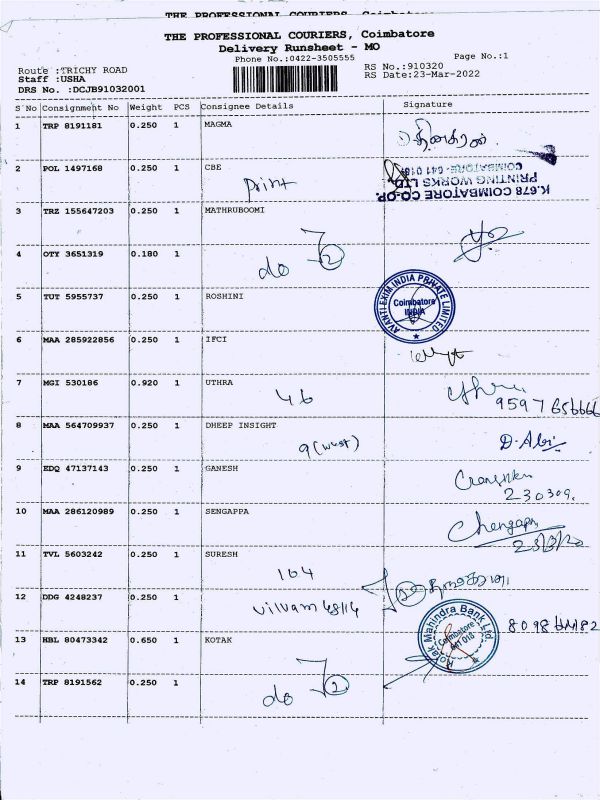 THE PROFESSIONAL COURIERS, Coimbatore
THE PROFESSIONAL COURIERS, Coimbatore
Delivery Runsheet - MO
Phone No.:0422-3505555
Page No.:1
Route :TRICHY ROAD
RS No.:910320
Staff :USHA
RS Date:23-Mar-2022
DRS No. :DCJB91032001
S No Consignment No Weight PCS Consignee Details Signature
1 TRP 8191181 0.250 1 MAGMA
2 POL 1497168 0.250 1 CBE
Print
K.678 COIMBATORE CO-OP.
PRINTING WORKS LTD.
COIMBATORE-641 018
3 TRZ 155647203 0.250 1 MATHRUBOOMI
4 OTY 3651319 0.180 1
do 2
5 TUT 5955737 0.250 1 ROSHINI
AVANTI EXIM INDIA PRIVATE LIMITED
Coimbatore
INDIA
6 MAA 285922856 0.250 1 IFCI
7 MGI 530186 0.920 1 UTHRA
46
9597656666
8 MAA 564709937 0.250 1 DHEEP INSIGHT
9 (west)
9 EDQ 47137143 0.250 1 GANESH
230309.
10 MAA 286120989 0.250 1 SENGAPPA
11 TVL 5603242 0.250 1 SURESH
104
12 DDG 4248237 0.250 1
Vilvam 48/14
13 HBL 80473342 0.650 1 KOTAK
Kotak Mahindra Bank Ltd
Coimbatore
641 018
14 TRP 8191562 0.250 1
do 2